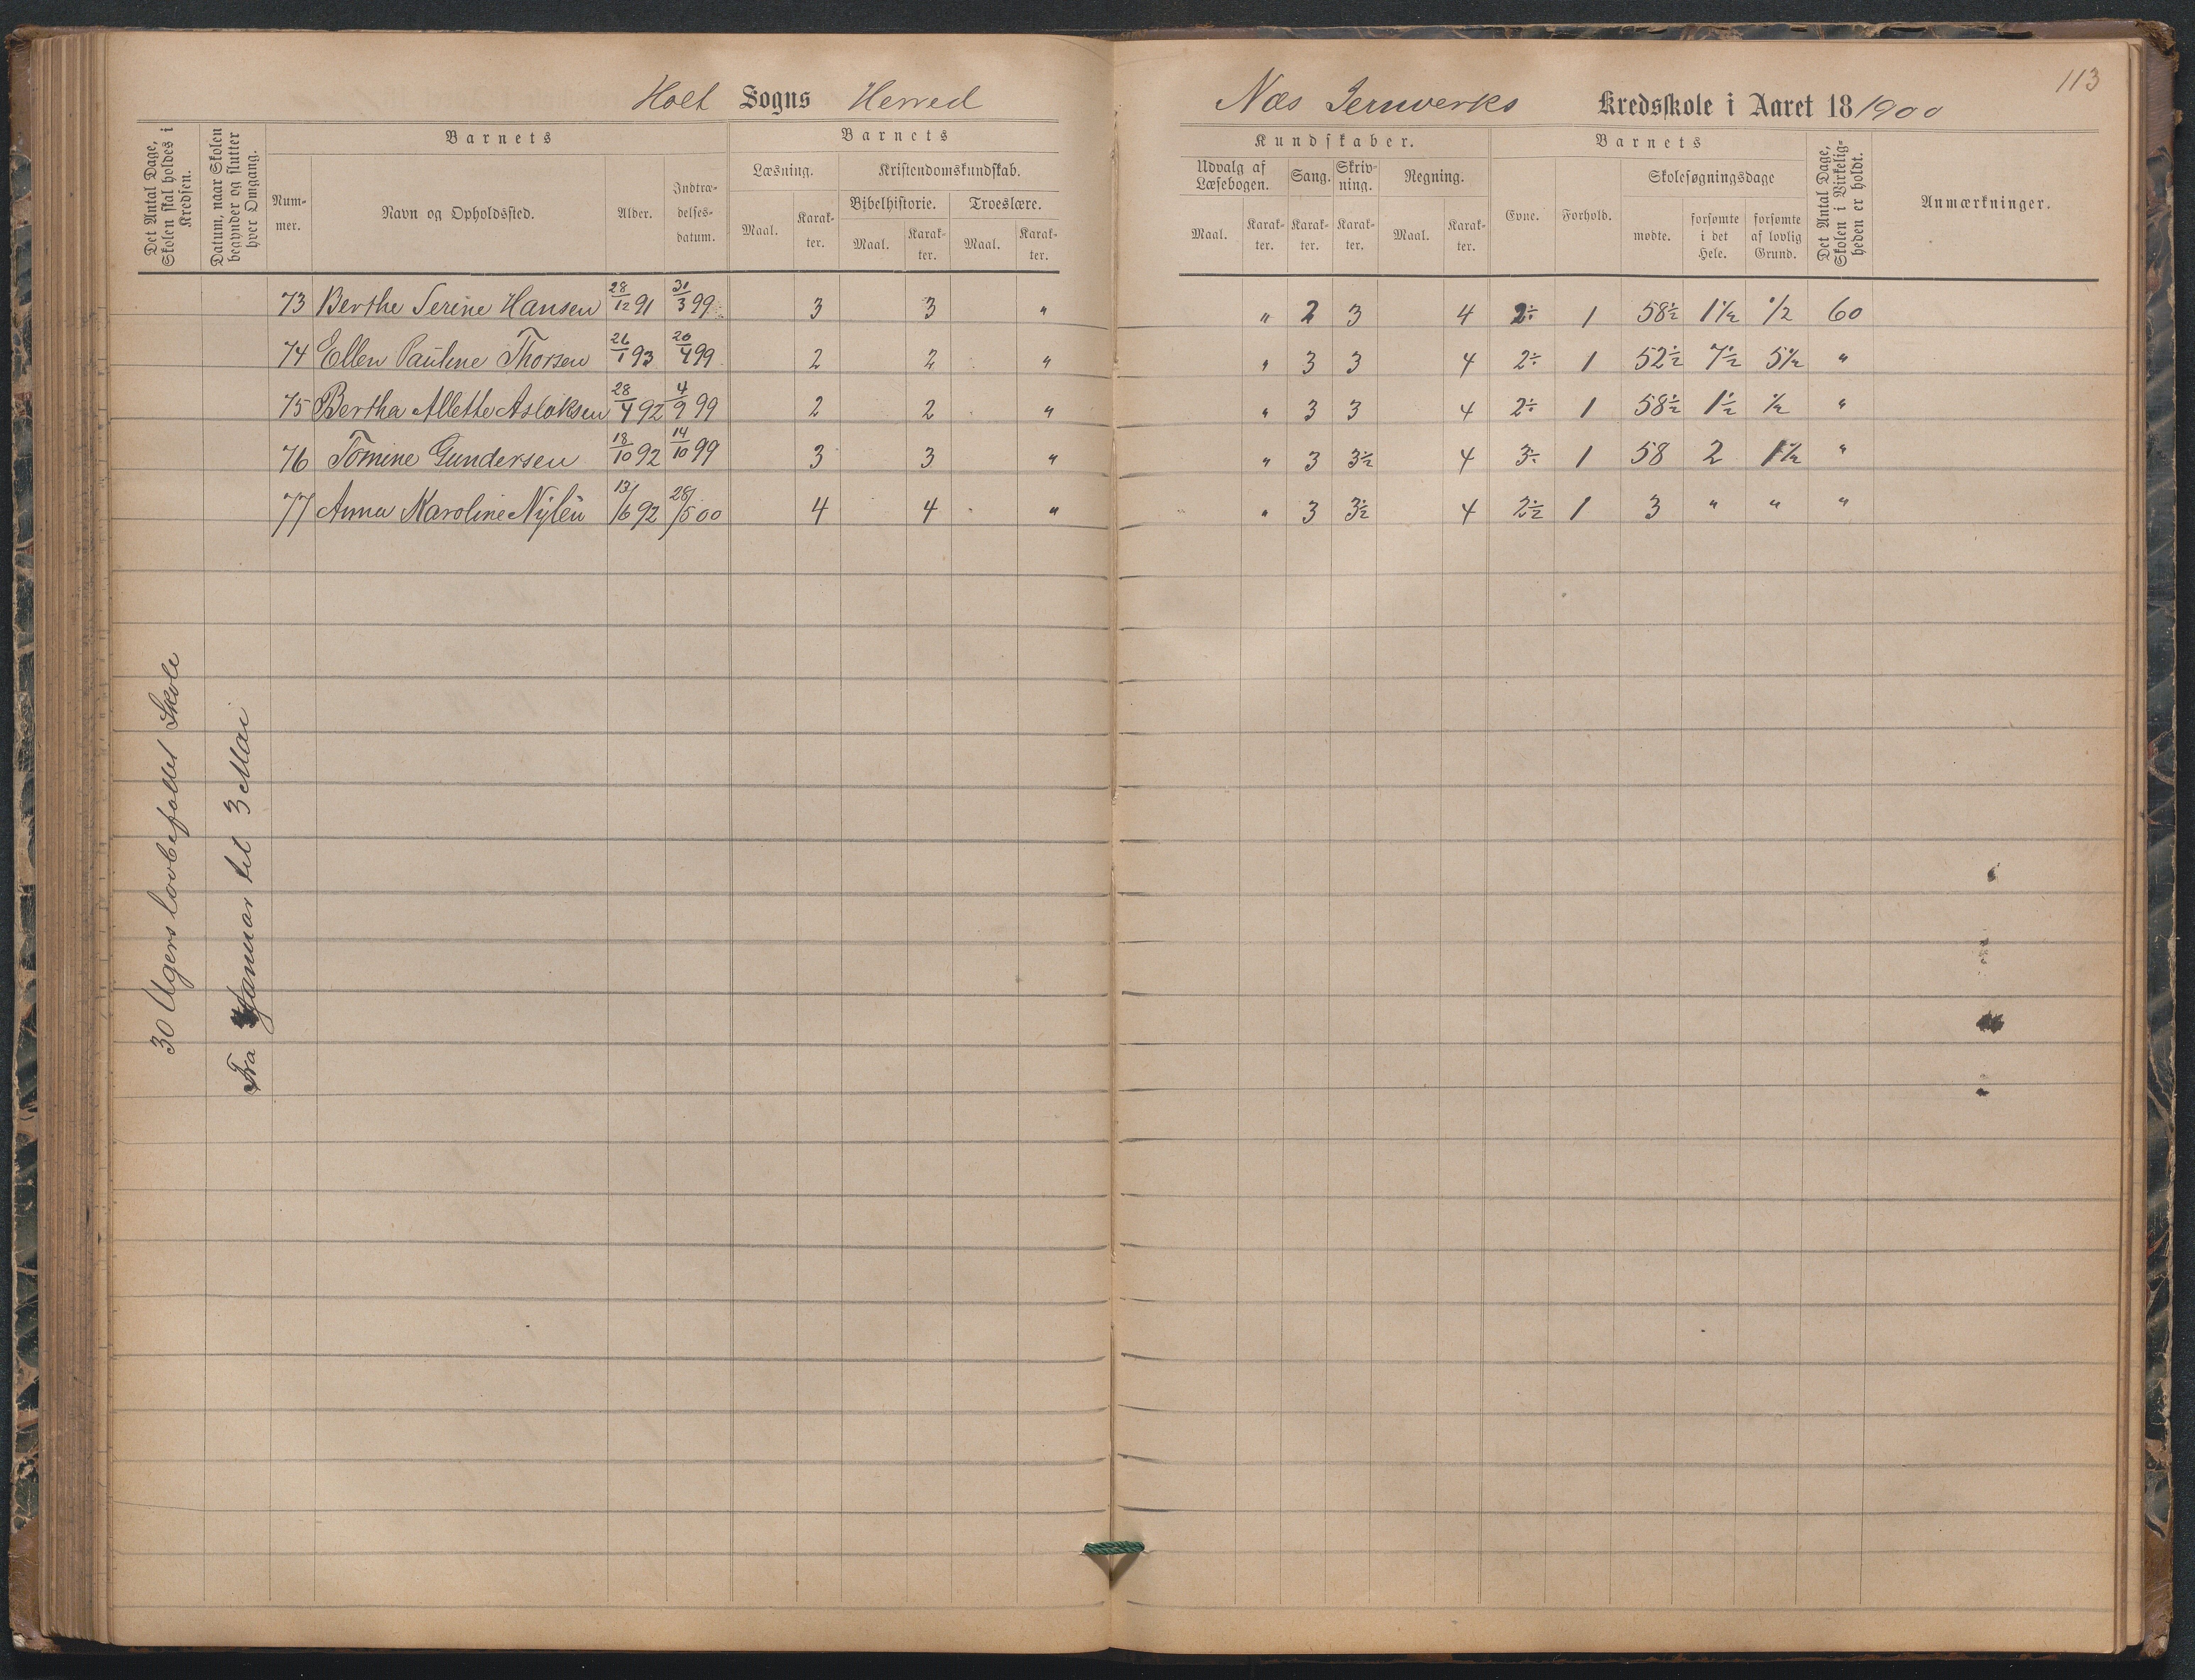 113
Holt Sogns Herred
Næs Jernverks Kredsskole i Aaret 18/1900
Det Antal Dage, Skolen skal holdes i Kredsen.
Datum, naar Skolen begynder og slutter hver Omgang.
Barnets
Num-mer.
Navn og Opholdssted.
Alder.
Indtræ-delses-datum.
Barnets
Læsning.
Maal. Karak-ter.
Kristendomskundskab.
Bibelhistorie. Troeslære.
Maal. Karak-ter. Maal. Karak-ter.
Kundskaber.
Udvalg af Læsebogen. Sang. Skriv-ning. Regning.
Maal. Karak-ter. Karak-ter. Karak-ter. Maal. Karak-ter.
Barnets
Evne. Forhold.
Skolesøgningsdage
mødte. forsømte i det Hele. forsømte af lovlig Grund.
Det Antal Dage, Skolen i Virkelig-heden er holdt.
Anmærkninger.
73 Berthe Serine Hansen 28/12 91 31/3 99 3 3 " " 2 3 4 2÷ 1 58½ 1½ ½ 60
74 Ellen Pauline Thorsen 26/1 93 20/4 99 2 2 " " 3 3 4 2÷ 1 52½ 7½ 5½ "
75 Bertha Allette Aslaksen 28/4 92 4/9 99 2 2 " " 3 3 4 2÷ 1 58½ 1½ ½ "
76 Tomine Gundersen 18/10 92 14/10 99 3 3 " " 3 3½ 4 3÷ 1 58 2 1½ "
77 Anna Karoline Nylén 13/6 92 28/5 00 4 4 " " 3 3½ 4 2½ 1 3 " " "
30 Ugers lovbefalet Skole
Fra Januar til 3 Mai